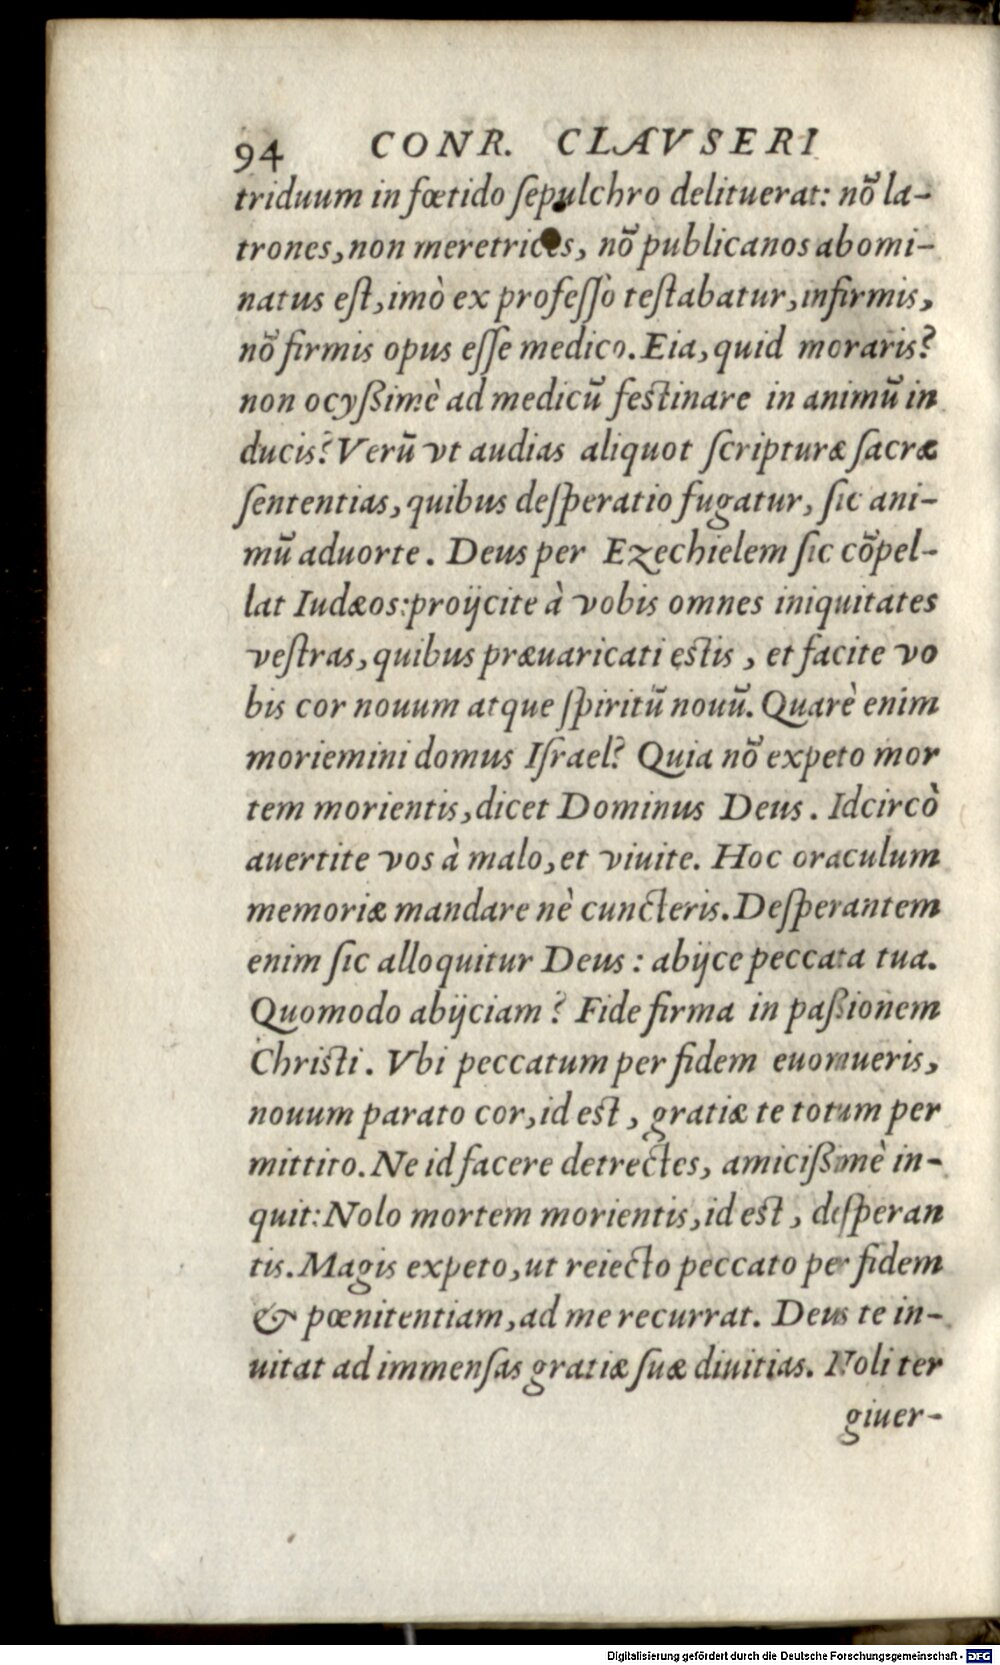 94 CONR. CLAVSERI
triduum in fœtido ſepulchro delituerat: nõ la-
trones, non meretrices, nõ publicanos abomi-
natus eſt, imò ex profeſſò teſtabatur, infirmis,
nõ firmis opus eſſe medico. Eia, quid moraris?
non ocyßimè ad medicũ feſtinare in animũ in
ducis? Verũ vt audias aliquot ſcripturæ ſacræ
ſententias, quibus deſperatio fugatur, ſic ani-
mũ aduorte. Deus per Ezechielem ſic cõpel-
lat Iudæos: proijcite à vobis omnes iniquitates
veſtras, quibus præuaricati eſtis, et facite vo
bis cor nouum atque ſpiritũ nouũ. Quarè enim
moriemini domus Iſrael? Quia nõ expeto mor
tem morientis, dicet Dominus Deus. Idcircò
auertite vos à malo, et viuite. Hoc oraculum
memoriæ mandare nè cuncteris. Deſperantem
enim ſic alloquitur Deus: abijce peccata tua.
Quomodo abijciam? Fide firma in paßionem
Chriſti. Vbi peccatum per fidem euomueris,
nouum parato cor, id eſt, gratiæ te totum per
mittito. Ne id facere detrectes, amicißimè in-
quit: Nolo mortem morientis, id eſt, deſperan
tis. Magis expeto, ut reiecto peccato per fidem
& pœnitentiam, ad me recurrat. Deus te in-
uitat ad immenſas gratiæ ſuæ diuitias. Noli ter
giuer-
Digitalisierung gefördert durch die Deutsche Forschungsgemeinschaft - DFG